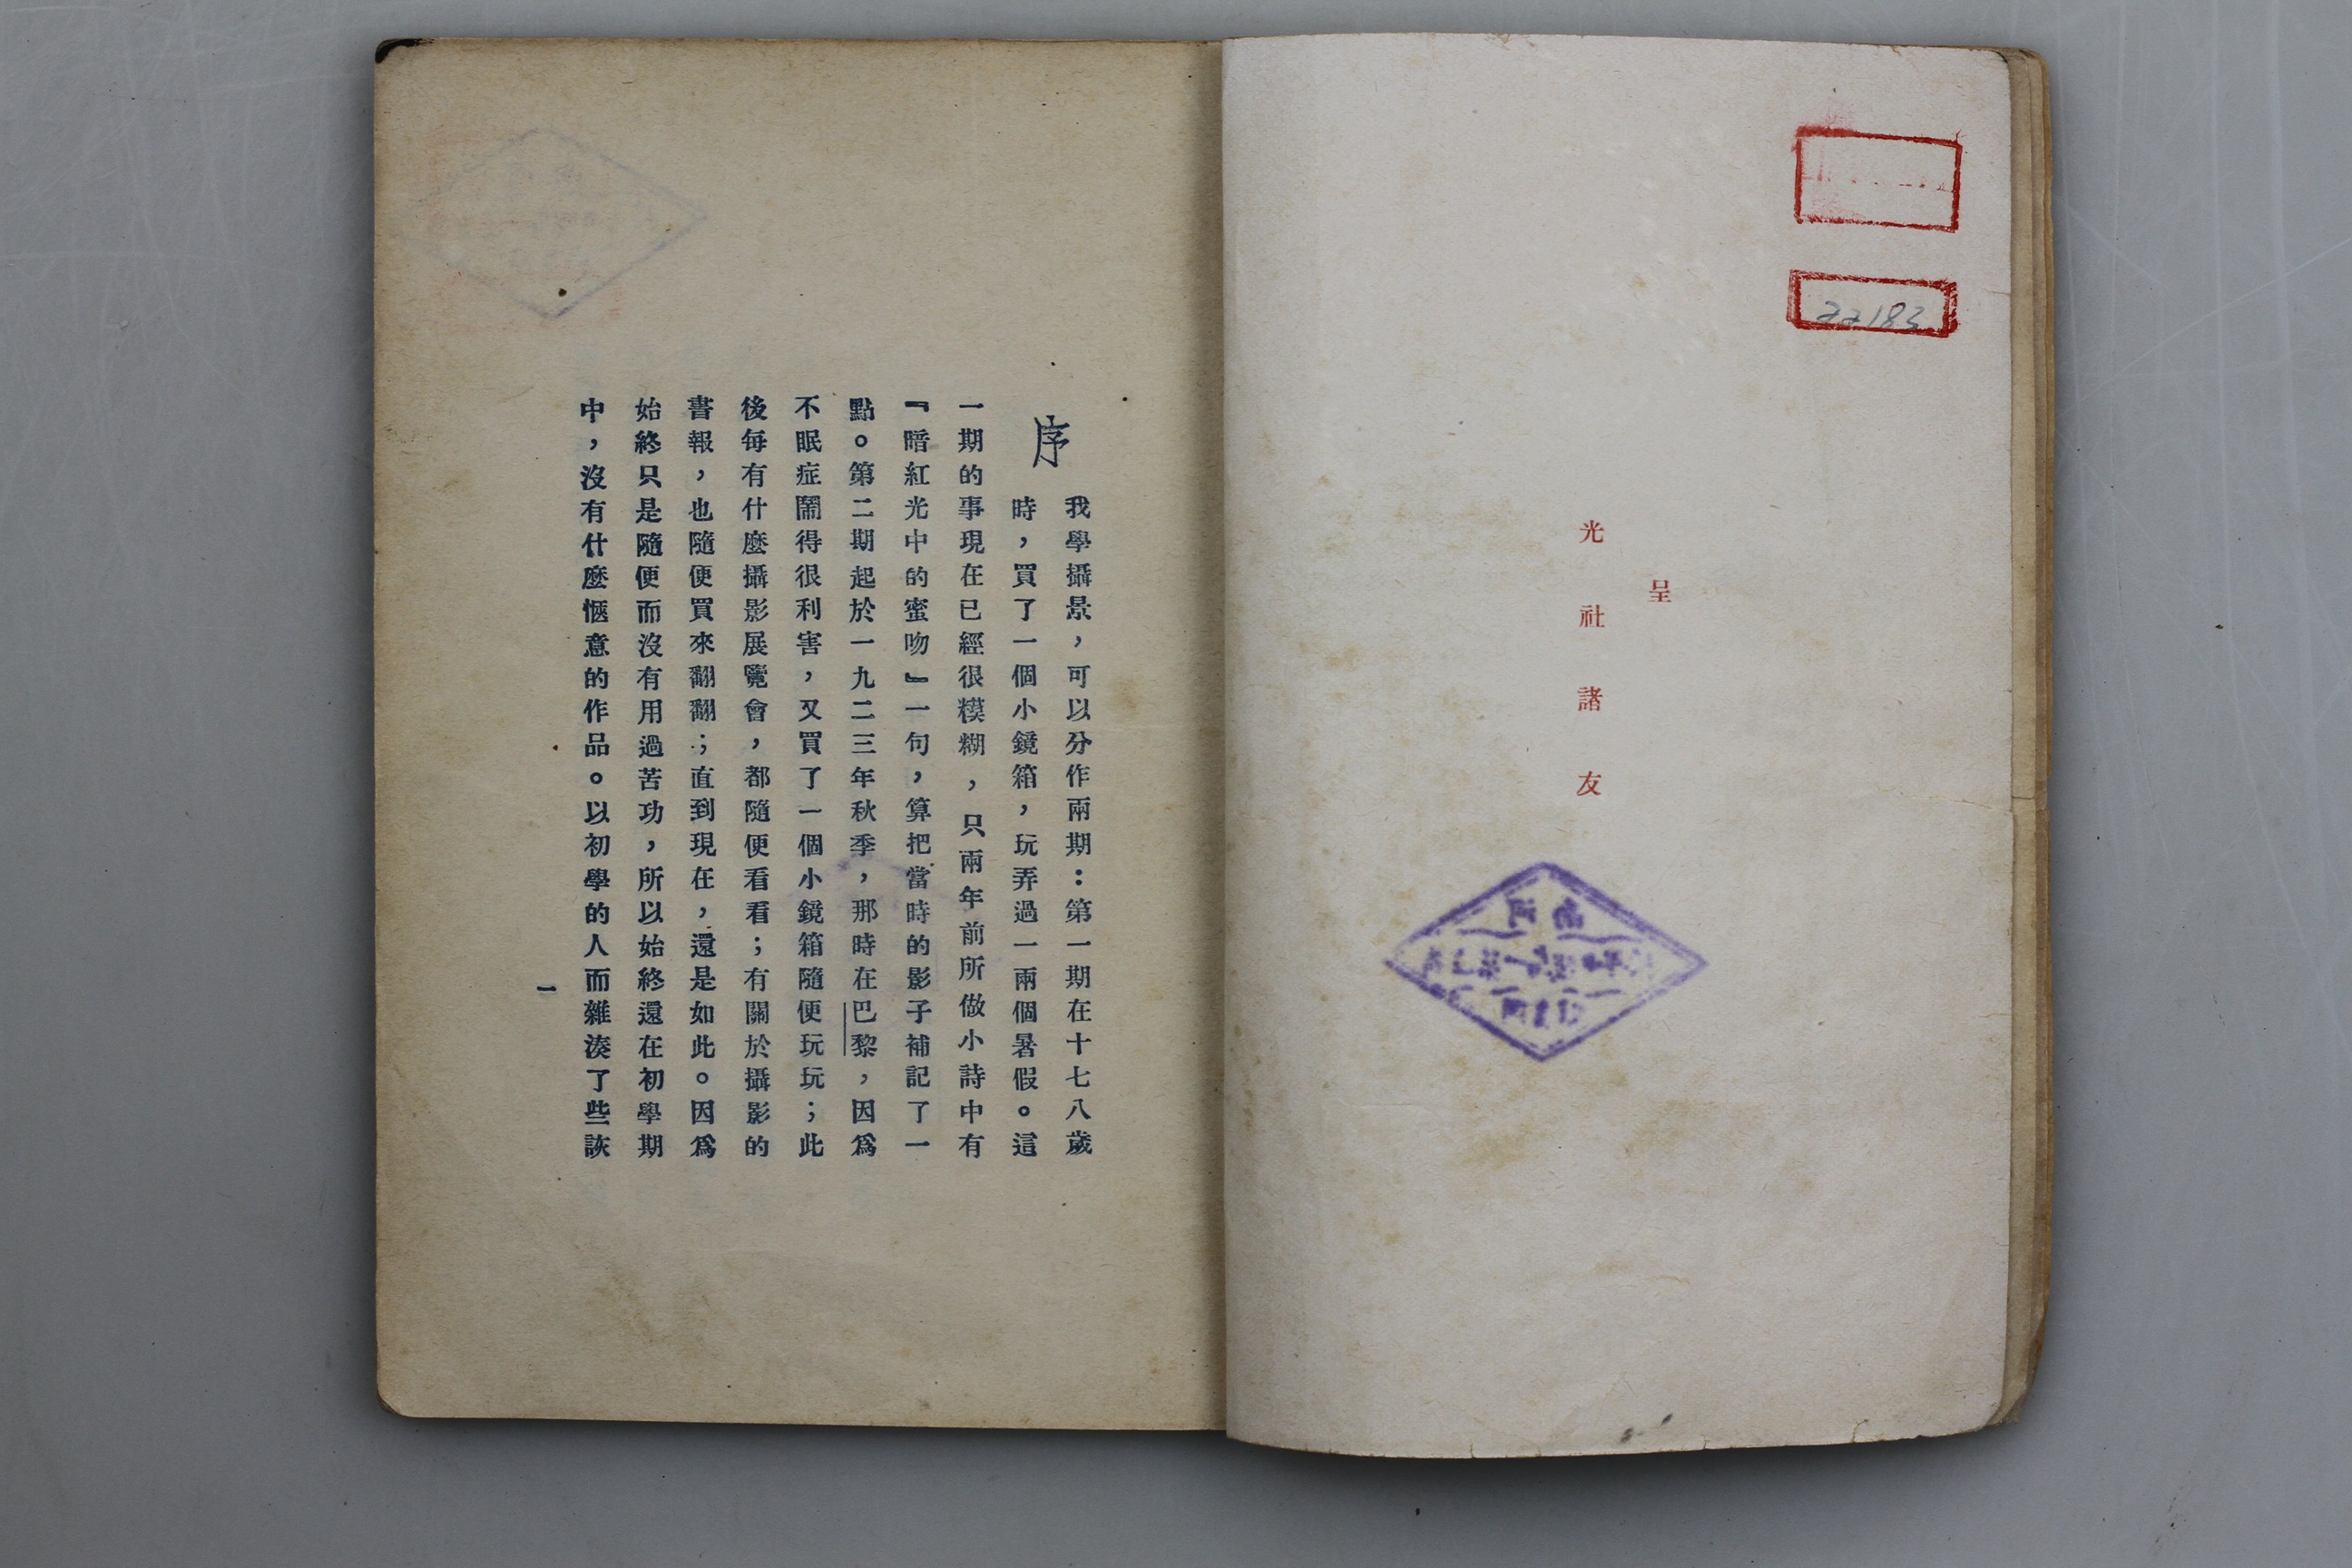 呈
光社諸友
22183
序
我學攝景，可以分作兩期：第一期在十七八歲
時，買了一個小鏡箱，玩弄過一兩個暑假。這
一期的事現在已經很糢糊，只兩年前所做小詩中有
『暗紅光中的蜜吻』一句，算把當時的影子補記了一
點。第二期起於一九二三年秋季，那時在巴黎，因爲
不眠症鬧得很利害，又買了一個小鏡箱隨便玩玩；此
後每有什麼攝影展覽會，都隨便看看；有關於攝影的
書報，也隨便買來翻翻；直到現在，還是如此。因爲
始終只是隨便而沒有用過苦功，所以始終還在初學期
中，沒有什麼愜意的作品。以初學的人而雜湊了些談
一